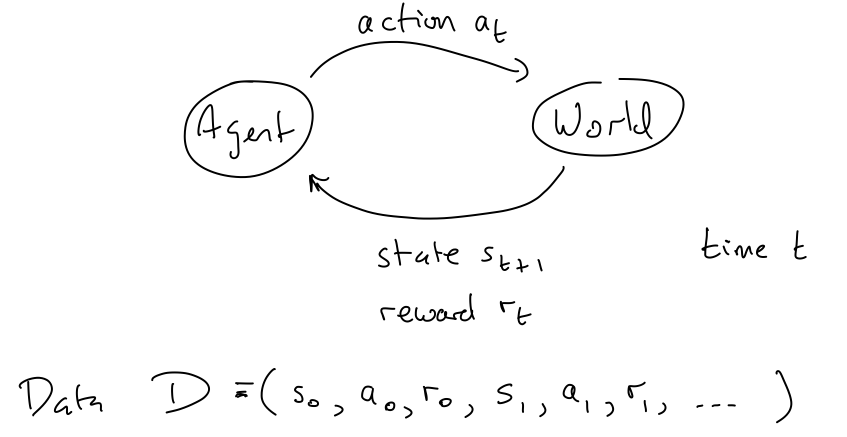 action a_t
Agent
World
state s_{t+1}
time t
reward r_t
Data D = ( s_0, a_0, r_0, s_1, a_1, r_1, ... )